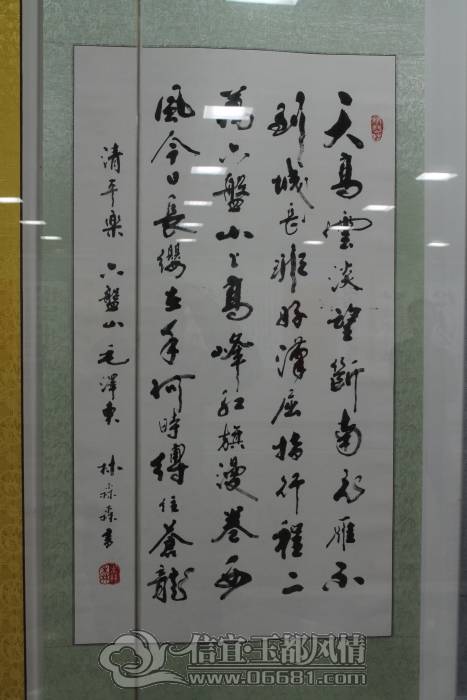 天高雲淡望斷南飛雁不
到城長非好漢屈指行程二
萬六盤山上高峰紅旗漫卷西
風今日長纓在手何時縛住蒼龍
清平樂 六盤山 毛澤東 林森森書
信宜·玉都风情
www.06681.com